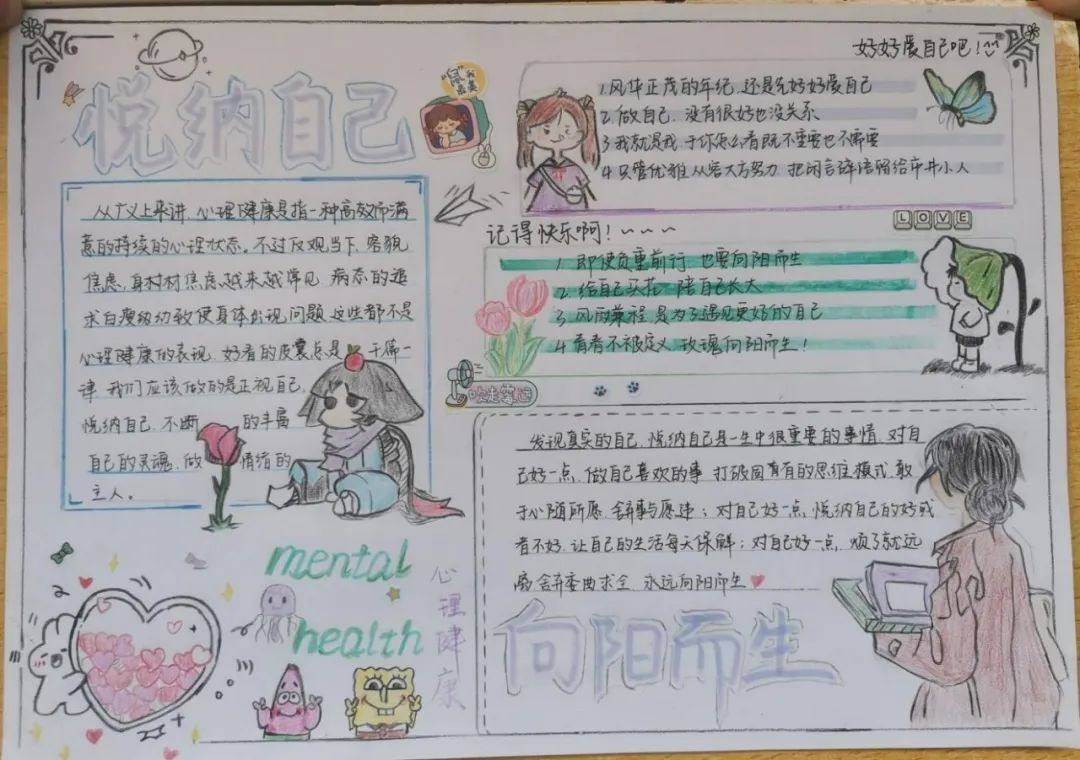 好好爱自己吧！
悦纳自己
1.风华正茂的年纪.还是先好好爱自己
2.做自己.没有很好也没关系
3.我就是我.于你怎么看既不重要也不需要
4.只管优雅.从容大方努力.把闲言碎语留给市井小人
LOVE
从广义上来讲.心理健康是指一种高效而满
意的持续的心理状态。不过反观当下.容貌
焦虑.身材焦虑越来越常见.病态的追
求白瘦幼幼致使身体出现问题.这些都不是
心理健康的表现.好看的皮囊总是千篇一
律.我们应该做的是正视自己.
悦纳自己.不断的丰富
自己的灵魂.做情绪的
主人。
记得快乐啊！~~~
1.即使负重前行.也要向阳而生
2.给自己买花.陪自己长大
3.风雨兼程.是为了遇见更好的自己
4.青春不被定义.玫瑰向阳而生！
吹走
发现真实的自己.悦纳自己是一生中很重要的事情.对自
己好一点.做自己喜欢的事.打破固有的思维模式.敢
于心随所愿.舍弃事与愿违；对自己好一点.悦纳自己的好或
者不好.让自己的生活每天保鲜；对自己好一点.烦了就远
离.舍弃委曲求全.永远向阳而生
mental
health
心理健康
向阳而生